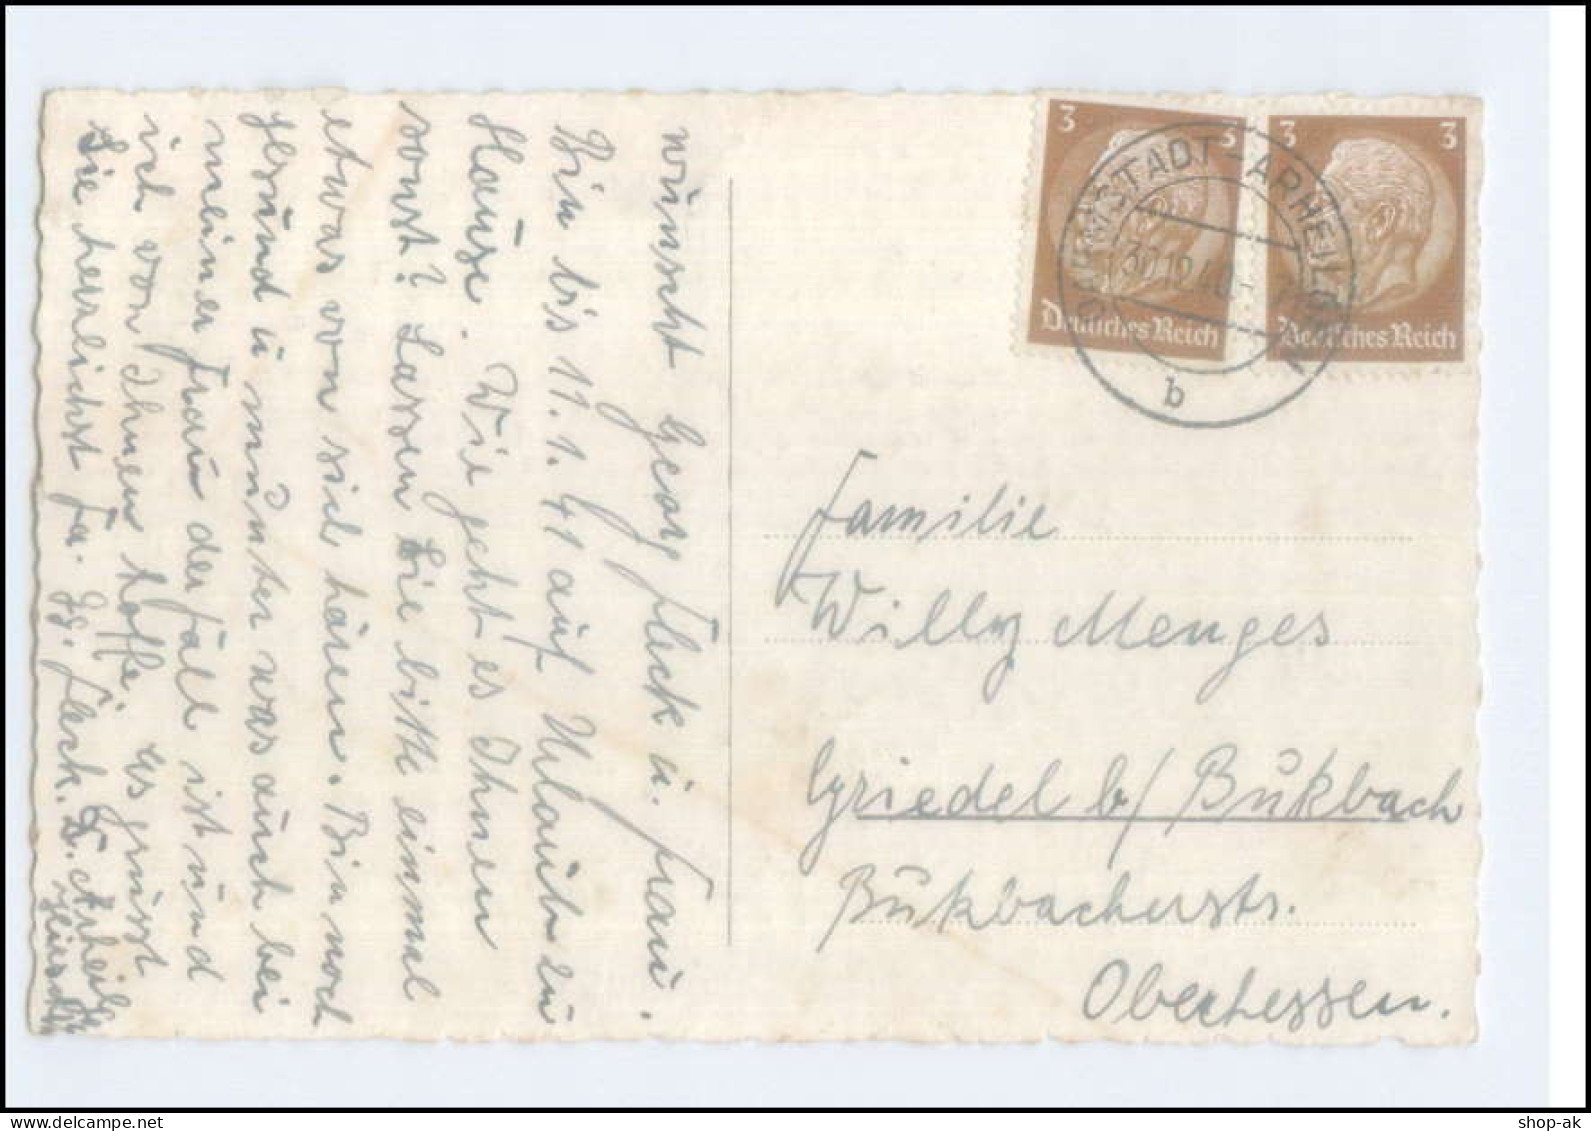 wünscht Georg Fleck u. Frau.
Bin bis 11.1.41 auf Urlaub zu
Hause. Wie geht es Ihnen
sonst? Lassen Sie bitte einmal
etwas von sich hören. Bin noch
gesund u munter was auch bei
meiner Frau der fall ist und
ich von Ihnen hoffe, es grüsst
Sie herzlichst Fa. Gg. Fleck. D. Arheilg.
3 3 3 3
DARMSTADT-ARHEILGEN
30.12.40
Deutsches Reich Deutsches Reich
b
Familie
Willy Menges
Griedel b/ Butzbach
Butzbacherstr.
Oberhessen.
shop-ak